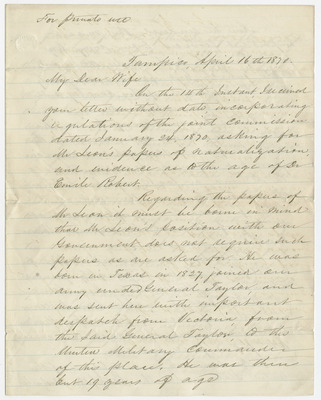 For private use
Tampico April 16th 1870.
My Dear Wife
On the 14th Instant I received
your letter without date incorporating
regulations of the joint Commission
dated January 24, 1870, asking for
Mr Leon's papers of Naturalization
and evidence as to the age of Dr
Emile Robert.
Regarding the papers of
Mr Leon it must be borne in mind
that Mr Leon's position with our
Government does not require such
papers as are asked for. He was
born in Texas in 1827, joined our
army under General Taylor and
was sent here with important
despatch from Victoria from
the said General Taylor to the
United Military Commander
of this place. He was then
but 19 years of age